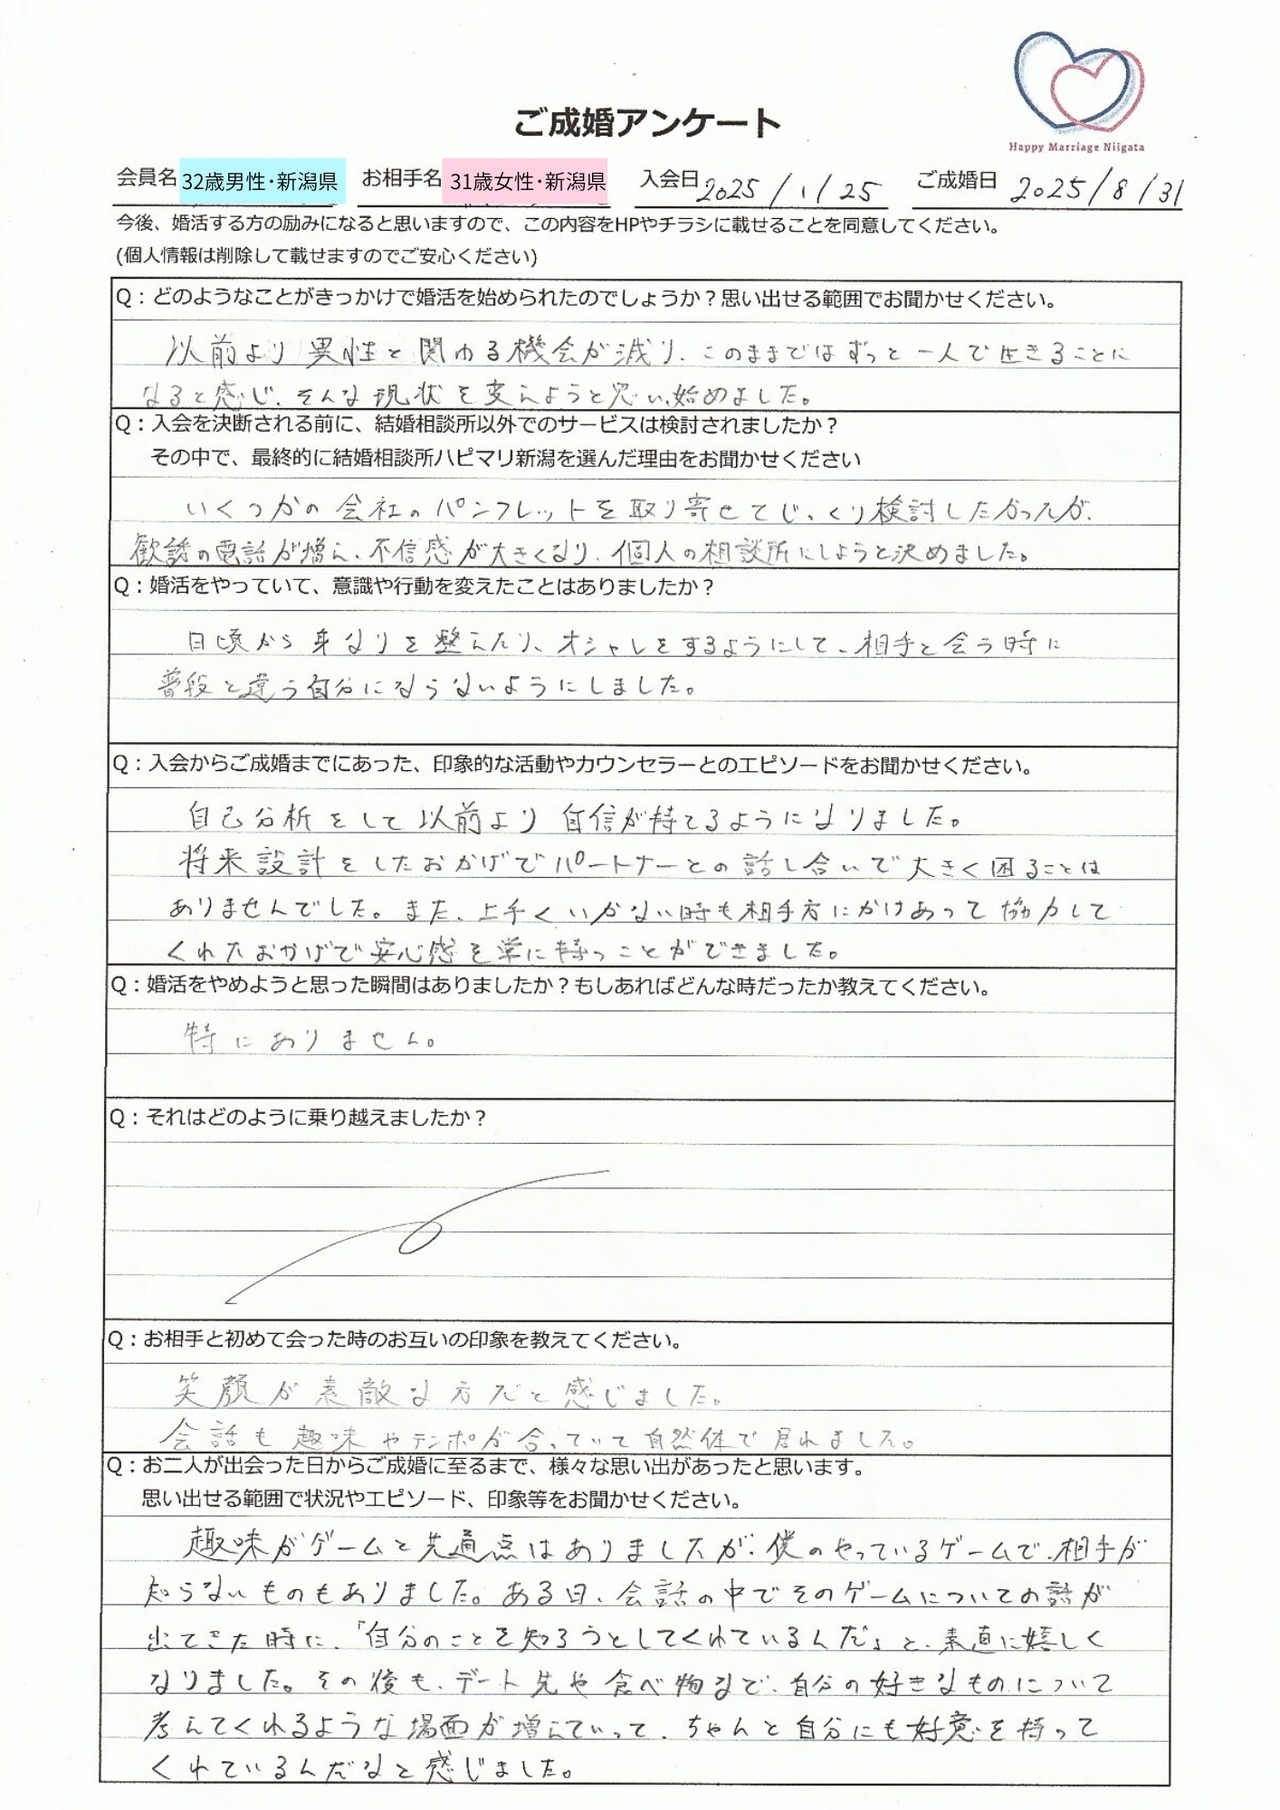 Happy Marriage Niigata
ご成婚アンケート
会員名 32歳男性・新潟県 お相手名 31歳女性・新潟県 入会日 2025/1/25 ご成婚日 2025/8/31
今後、婚活する方の励みになると思いますので、この内容をHPやチラシに載せることを同意してください。
(個人情報は削除して載せますのでご安心ください)
Q:どのようなことがきっかけで婚活を始められたのでしょうか?思い出せる範囲でお聞かせください。
以前より異性と関わる機会が減り、このままではずっと一人で生きることに
なると感じ、そんな現状を変えようと思い、始めました。
Q:入会を決断される前に、結婚相談所以外でのサービスは検討されましたか?
その中で、最終的に結婚相談所ハピマリ新潟を選んだ理由をお聞かせください
いくつかの会社のパンフレットを取り寄せてじっくり検討したかったが、
歓誘の電話が増え、不信感が大きくなり、個人の相談所にしようと決めました。
Q:婚活をやっていて、意識や行動を変えたことはありましたか?
日頃から身なりを整えたり、オシャレをするようにして、相手と会う時に
普段と違う自分にならないようにしました。
Q:入会からご成婚までにあった、印象的な活動やカウンセラーとのエピソードをお聞かせください。
自己分析をして以前より自信が持てるようになりました。
将来設計をしたおかげでパートナーとの話し合いで大きく困ることは
ありませんでした。また、上手くいかない時も相手方にかけあって協力して
くれたおかげで安心感を常に持つことができました。
Q:婚活をやめようと思った瞬間はありましたか?もしあればどんな時だったか教えてください。
特にありません。
Q:それはどのように乗り越えましたか?
Q:お相手と初めて会った時のお互いの印象を教えてください。
笑顔が素敵な方だと感じました。
会話も趣味やテンポが合っていて自然体で居れました。
Q:お二人が出会った日からご成婚に至るまで、様々な思い出があったと思います。
思い出せる範囲で状況やエピソード、印象等をお聞かせください。
趣味がゲームと共通点はありましたが、僕のやっているゲームで、相手が
知らないものもありました。ある日、会話の中でそのゲームについての話が
出てきた時に、「自分のことを知ろうとしてくれているんだ」と、素直に嬉しく
なりました。その後も、デート先や食べ物などで、自分の好きなものについて
考えてくれるような場面が増えていって、ちゃんと自分にも好意を持って
くれているんだなと感じました。